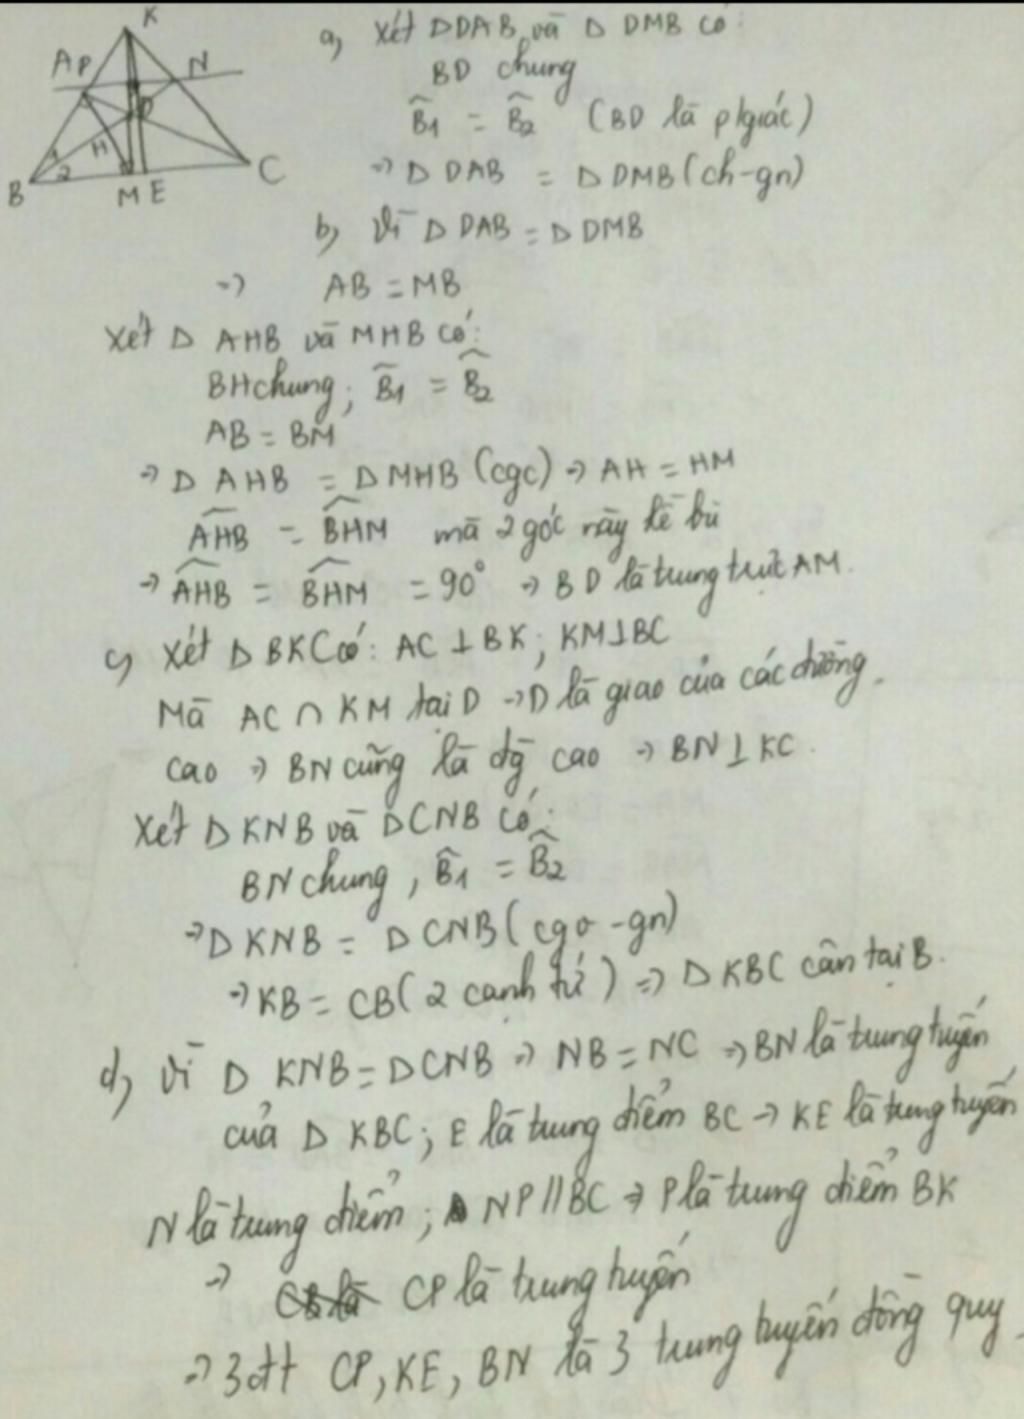 K
A P N
D
H
1
2
B M E C
a, Xét Δ DAB và Δ DMB có:
BD chung
B̂1 = B̂2 (BD là p/giác)
→ Δ DAB = Δ DMB (ch-gn)
b, Vì Δ DAB = Δ DMB
→ AB = MB
Xét Δ AHB và MHB có:
BH chung; B̂1 = B̂2
AB = BM
→ Δ AHB = Δ MHB (cgc) → AH = HM
AHB̂ = BHM̂ mà 2 góc này kề bù
→ AHB̂ = BHM̂ = 90° → BD là trung trực AM.
c, Xét Δ BKC có: AC ⊥ BK; KM ⊥ BC
Mà AC ∩ KM tại D → D là giao của các đường
cao → BN cũng là đg cao → BN ⊥ KC.
Xét Δ KNB và Δ CNB có:
BN chung, B̂1 = B̂2
→ Δ KNB = Δ CNB (cgv-gn)
→ KB = CB (2 cạnh tứ) → Δ KBC cân tại B.
d, Vì Δ KNB = Δ CNB → NB = NC → BN là trung tuyến
của Δ KBC; E là trung điểm BC → KE là trung tuyến
N là trung điểm; NP // BC → P là trung điểm BK
→ CP là trung tuyến
→ 3 đt CP, KE, BN là 3 trung tuyến đồng quy